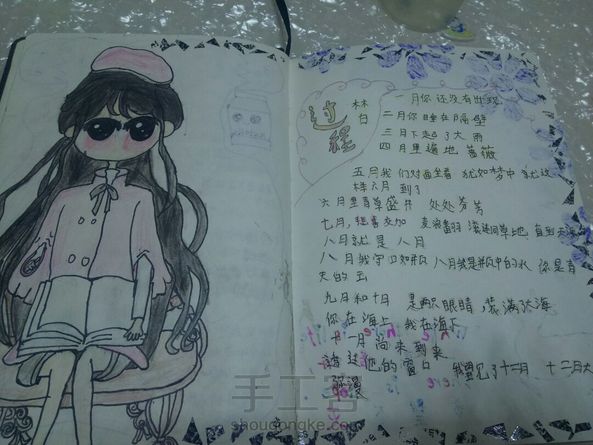 过程
林白
一月你还没有出现
二月你睡在隔壁
三月下起了大雨
四月里遍地蔷薇
五月我们对面坐着 犹如梦中 就这
样六月 到了
六月里青草盛开 处处芳芳
七月，悲喜交加 麦浪翻滚连同草地 直到天涯
八月就是 八月
八月我守口如瓶 八月我是瓶中的水 你是青
天的云
九月和十月 是两只眼睛，装满大海
你在海上 我在海下
十一月尚未到来
透过他的窗口 我望见了十二月 十二月大
雪弥漫
手工客
shougongke.com